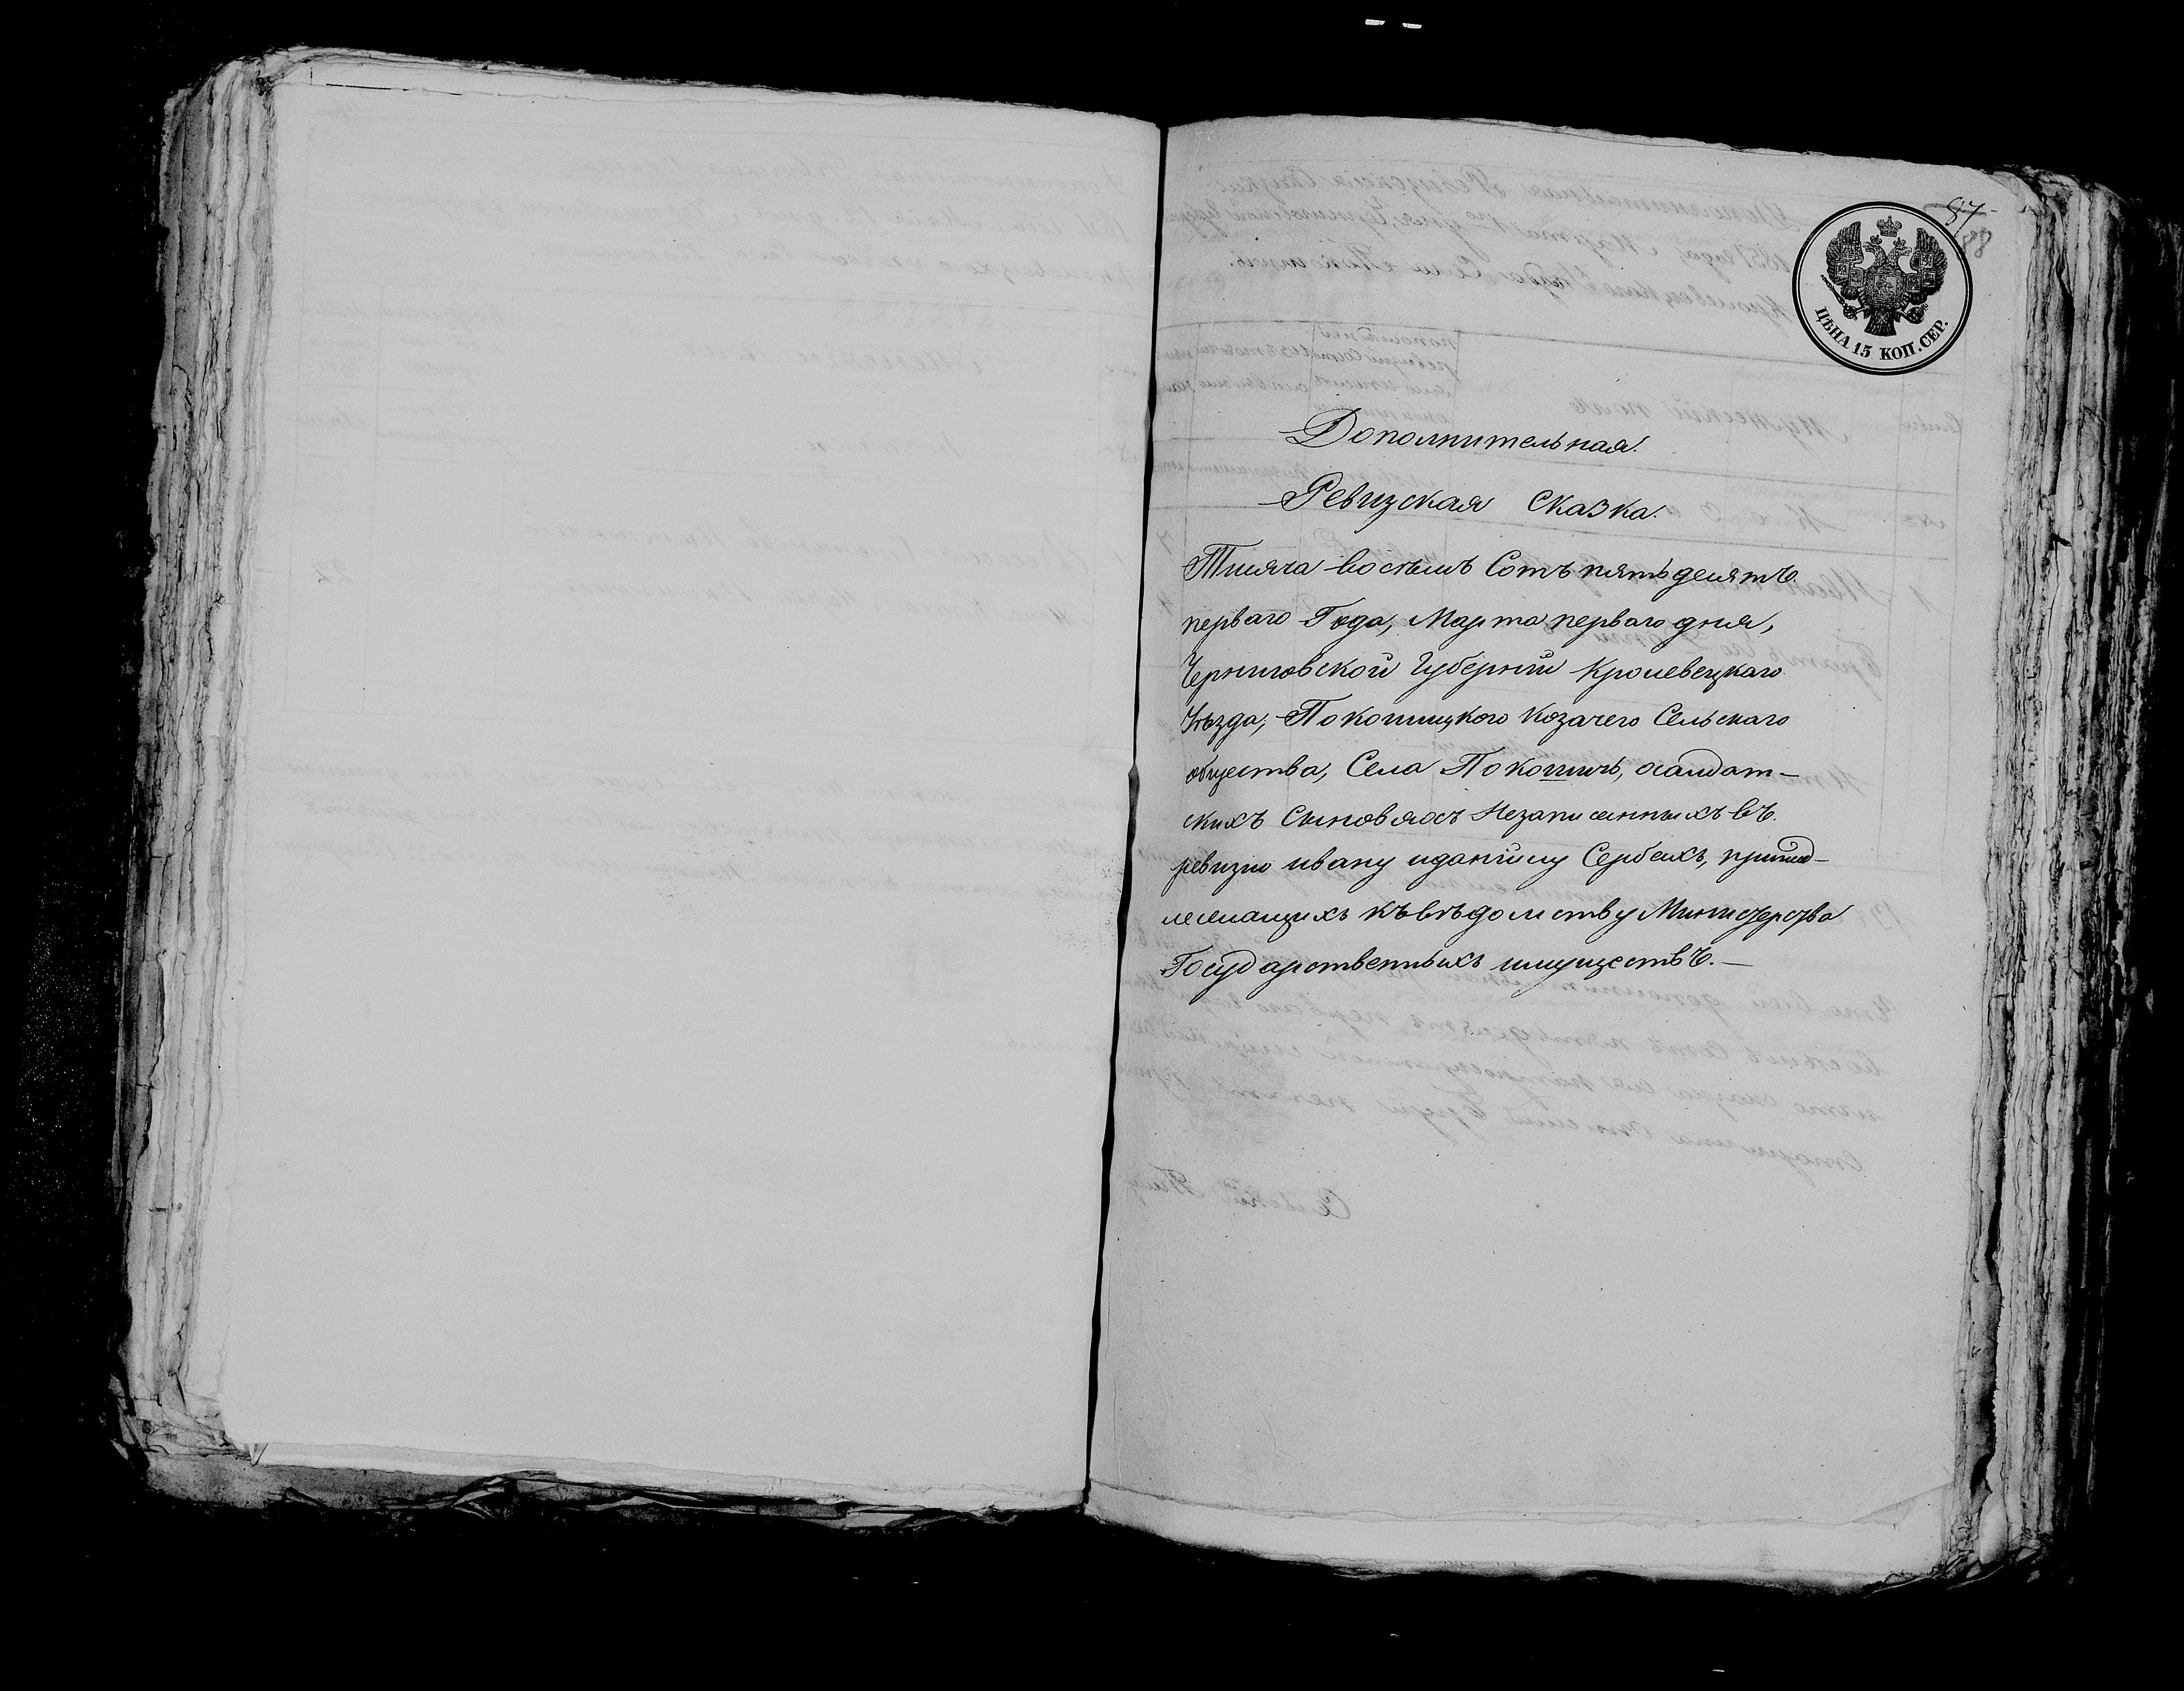 87
88
ЦѢНА 15 КОП. СЕР.
Дополнительная
Ревизская Сказка.
Тысяча восемъ Сотъ пятьдесятъ
перваго Года, Марта перваго дня,
Черниговской Губерніи Кролевецкаго
Уѣзда, Покошицкого Козачего Сельскаго
общества, Села Покошичь, осалдат-
скихъ Сыновяхъ Незаписанныхъ въ
ревизію ивану иданіилу Сербахъ, принад-
лежащихъ къ вѣдомству Министерства
Государственныхъ имуществъ.—